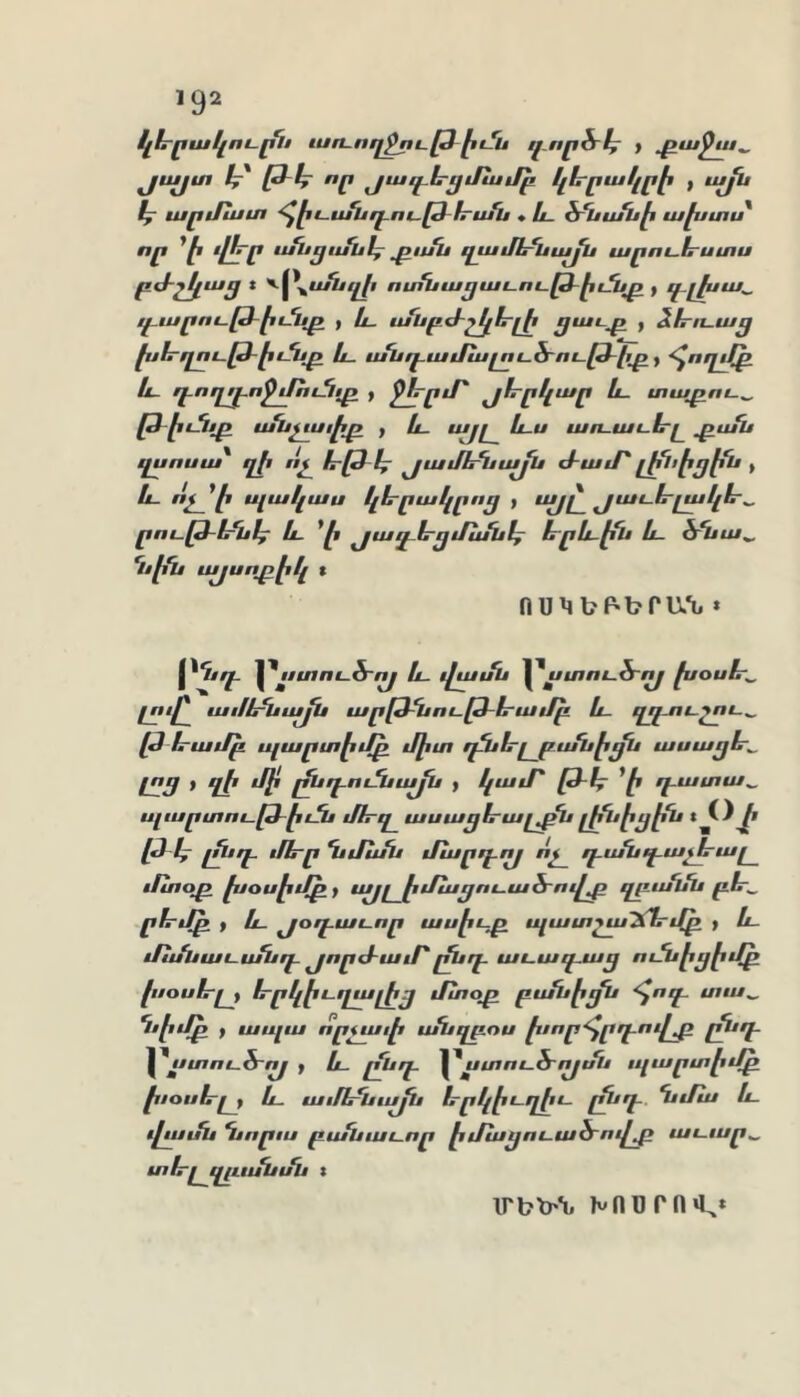 192
կերակուրն առողջութիւն գործէ , քաջա֊
յայտ է՝ թէ որ յագեցմամբ կերակրի , այն
է արմատ հիւանդութեան . և ծնանի ախտս՝
որ 'ի վեր անցանէ քան զամենայն արուեստս
բժշկաց ։ Վանզի ոտնացաւութիւնք , գլխա֊
գարութիւնք , և անբժշկելի ցաւք , ձեռաց
խեղութիւնք և անդամալուծութիք , հողմք
և դողդոջմունք , ջերմ յերկար և տաքու֊
թիւնք անչափք , և այլ ևս առաւել քան
զսոսա՝ զի ոչ եթէ յամենայն ժամ լինիցին ,
և ոչ 'ի պակաս կերակրոց , այլ յաւելակե֊
րութենէ և 'ի յագեցմանէ երևին և ծնա֊
նին այսոքիկ ։
ՈՍԿԵԲԵՐԱՆ ։
Ընդ Աստուծոյ և վասն Աստուծոյ խօսե֊
լով՝ ամենայն արթնութեամբ և զգուշու֊
թեամբ պարտիմք միտ դնել բանիցն ասացե֊
լոց , զի մի՛ ընդունայն , կամ թէ 'ի դատա֊
պարտութիւն մեզ ասացեալքն լինիցին ։ Օի
թէ ընդ մեր նման մարդոյ ոչ դանդաչեալ
մտօք խօսիմք , այլ իմացուածովք զբանն բե֊
րեմք , և յօդաւոր ասիւք պատշաճեմք , և
մանաւանդ յորժամ ընդ աւագաց ունիցիմք
խօսել , երկիւղալից մտօք բանիցն հոգ տա֊
նիմք , ապա ո՛րչափ անզբօս խորհրդովք ընդ
Աստուծոյ , և ընդ Աստուծոյսն պարտիմք
խօսել , և ամենայն երկիւղիւ ընդ նմա և
վասն նորա բանաւոր իմացուածովք աւար֊
տել զբանսն ։
ՄԵԾՆ ԽՈՍՐՈՎ ։